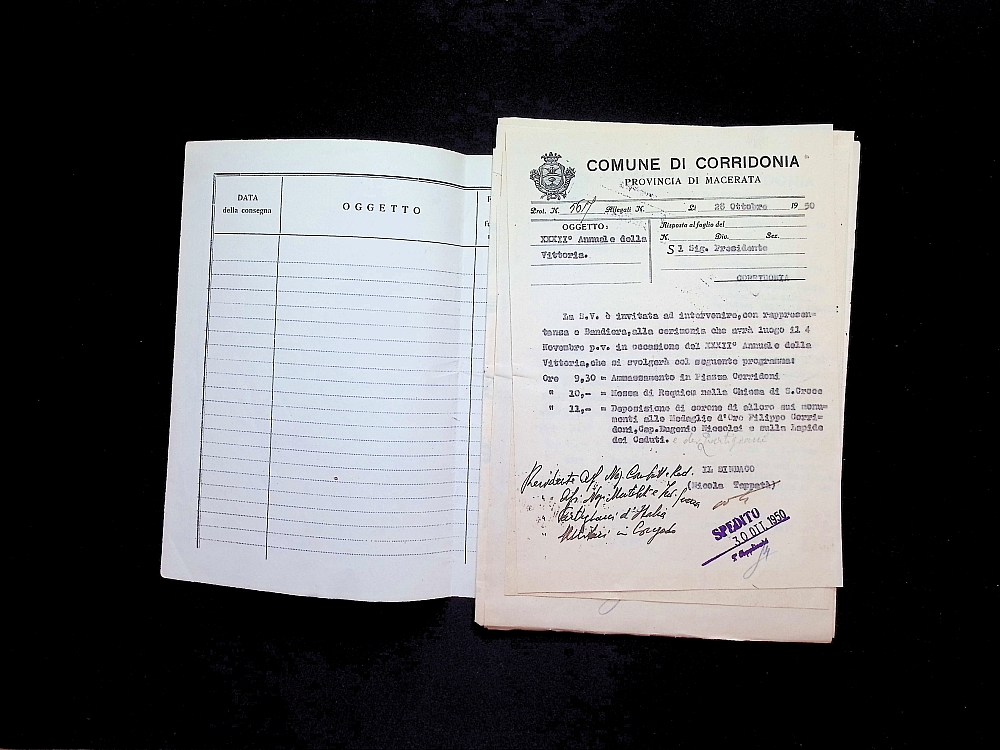 DATA
della consegna
OGGETTO
COMUNE DI CORRIDONIA
PROVINCIA DI MACERATA
Prot. N. Allegati N. Lì 28 Ottobre 1950
OGGETTO:
XXXII° Annuale della
Vittoria.
Risposta al foglio del
N. Div. Sez.
Sl Sig. Presidente
CORRIDONIA
La S.V. è invitata ad intervenire,con rappresen-
tanza e Bandiera,alla cerimonia che avrà luogo il 4
Novembre p.v. in occasione del XXXII° Annuale della
Vittoria,che si svolgerà col seguente programma:
Ore 9,30 = Ammassamento in Piazza Corridoni
" 10,- = Messa di Requiem nella Chiesa di S.Croce
" 11,- = Deposizione di corone di alloro sui monu-
menti alle Medaglie d'Oro Filippo Corri-
doni,Cap.Eugenio Niccolai e sulla Lapide
dei Caduti. e dei Partigiani
IL SINDACO
(Nicola Toppatà)
Presidente Ass. Naz. Combatt. e Red.
Ass. Naz. Mutilati e Inv. guerra
Partigiani d'Italia
Militari in Congedo
SPEDITO
30 OTT 1950